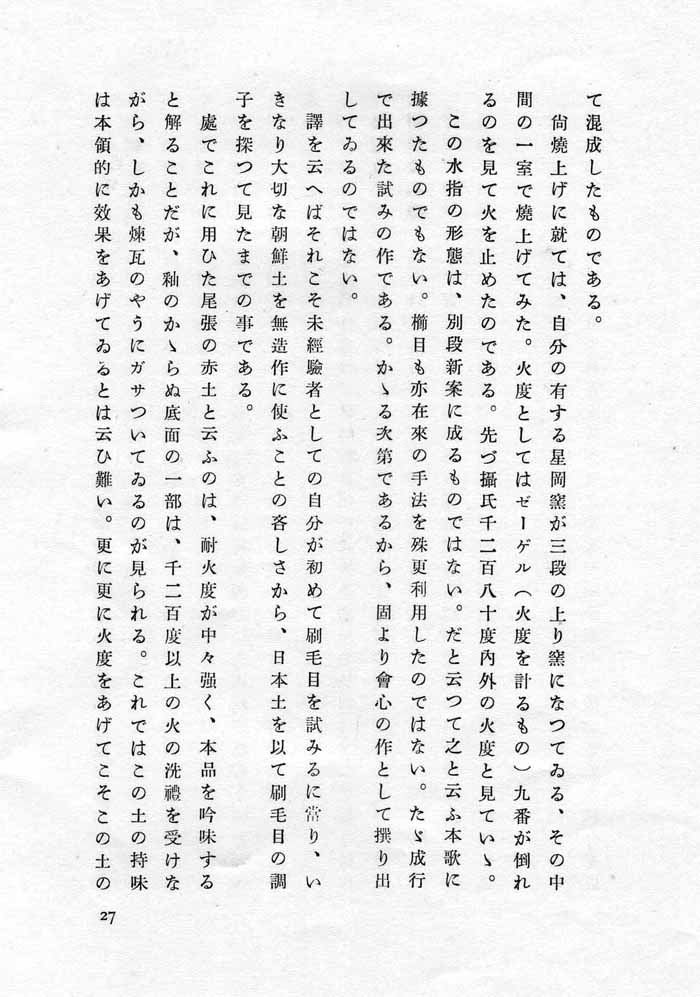 て混成したものである。
尙燒上げに就ては、自分の有する星岡窯が三段の上り窯になつてゐる、その中
間の一室で燒上げてみた。火度としてはゼーゲル(火度を計るもの)九番が倒れ
るのを見て火を止めたのである。先づ攝氏千二百八十度內外の火度と見ていゝ。
この水指の形態は、別段新案に成るものではない。だと云つて之と云ふ本歌に
據つたものでもない。櫛目も亦在來の手法を殊更利用したのではない。たゞ成行
で出來た試みの作である。かゝる次第であるから、固より會心の作として撰り出
してゐるのではない。
譯を云へばそれこそ未經驗者としての自分が初めて刷毛目を試みるに當り、い
きなり大切な朝鮮土を無造作に使ふことの吝しさから、日本土を以て刷毛目の調
子を探つて見たまでの事である。
處でこれに用ひた尾張の赤土と云ふのは、耐火度が中々强く、本品を吟味する
と解ることだが、釉のかゝらぬ底面の一部は、千二百度以上の火の洗禮を受けな
がら、しかも煉瓦のやうにガサついてゐるのが見られる。これではこの土の持味
は本領的に効果をあげてゐるとは云ひ難い。更に更に火度をあげてこそこの土の
27